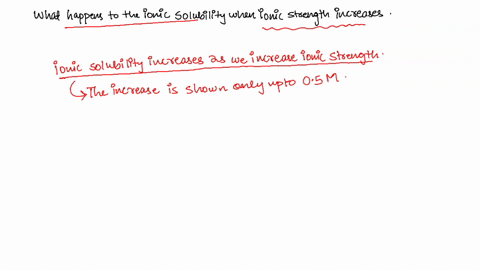 What happens to the ionic solubility when ionic strength increases.
ionic solubility increases as we increase ionic strength.
The increase is shown only upto 0.5M.